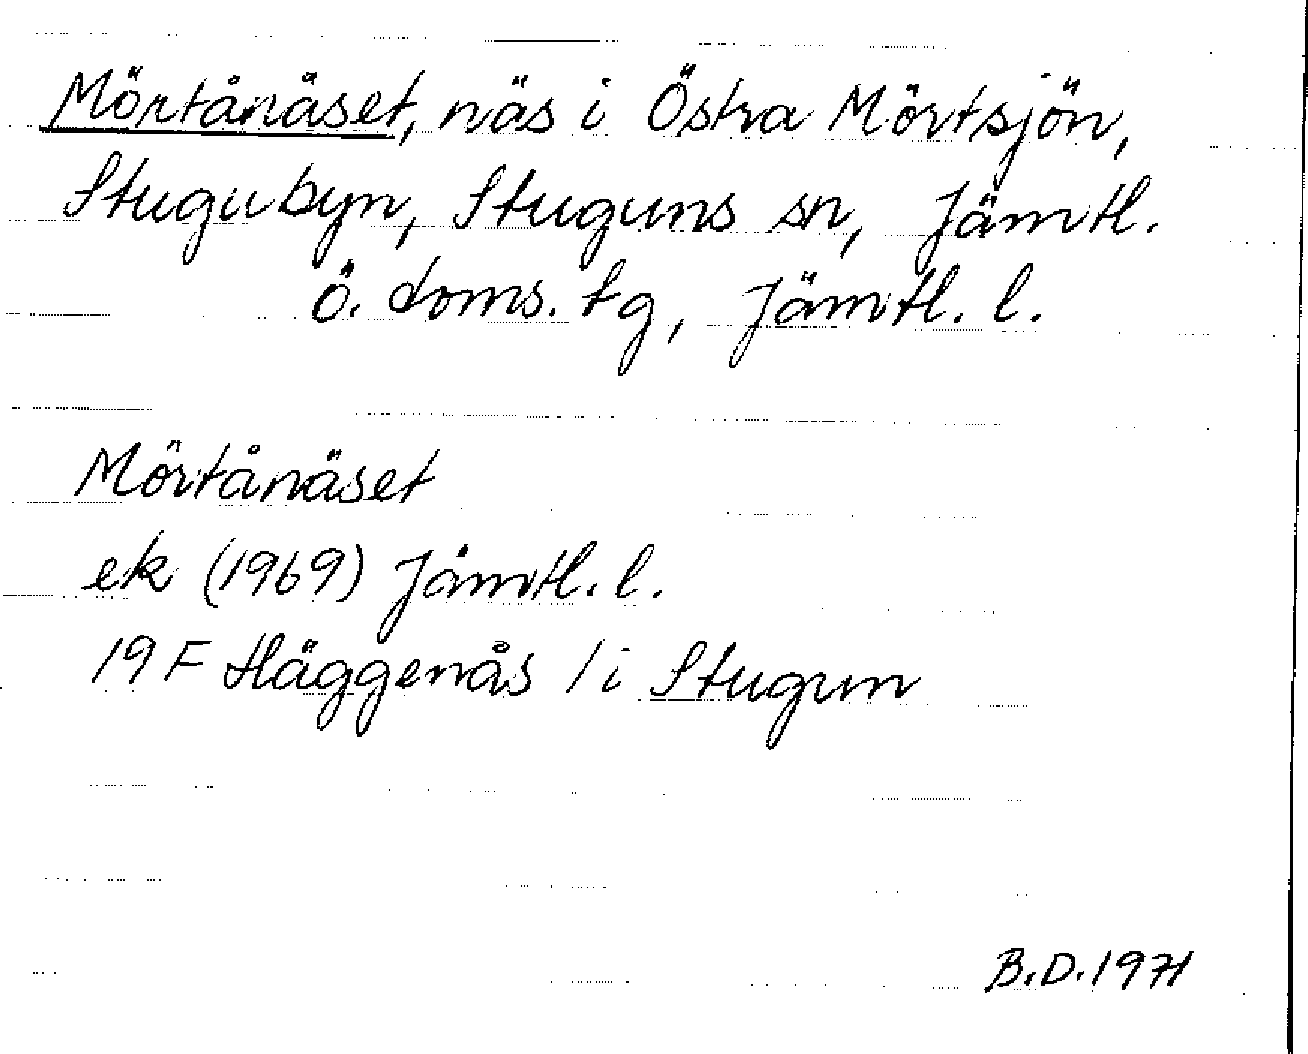 Mörtånäset, näs i Östra Mörtsjön,
Stugubyn, Stuguns sn, Jämtl.
ö. doms. tg, Jämtl. l.
Mörtånäset
ek (1969) Jämtl. l.
19 F Häggenås / i Stugun
B.D. 1971